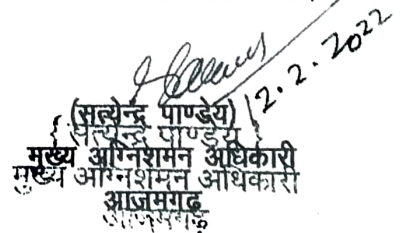 12.2.2022
(सत्येन्द्र पाण्डेय)
{ सत्येन्द्र पाण्डेय }
मुख्य अग्निशमन अधिकारी
मुख्य अग्निशमन अधिकारी
आजमगढ़
आजमगढ़